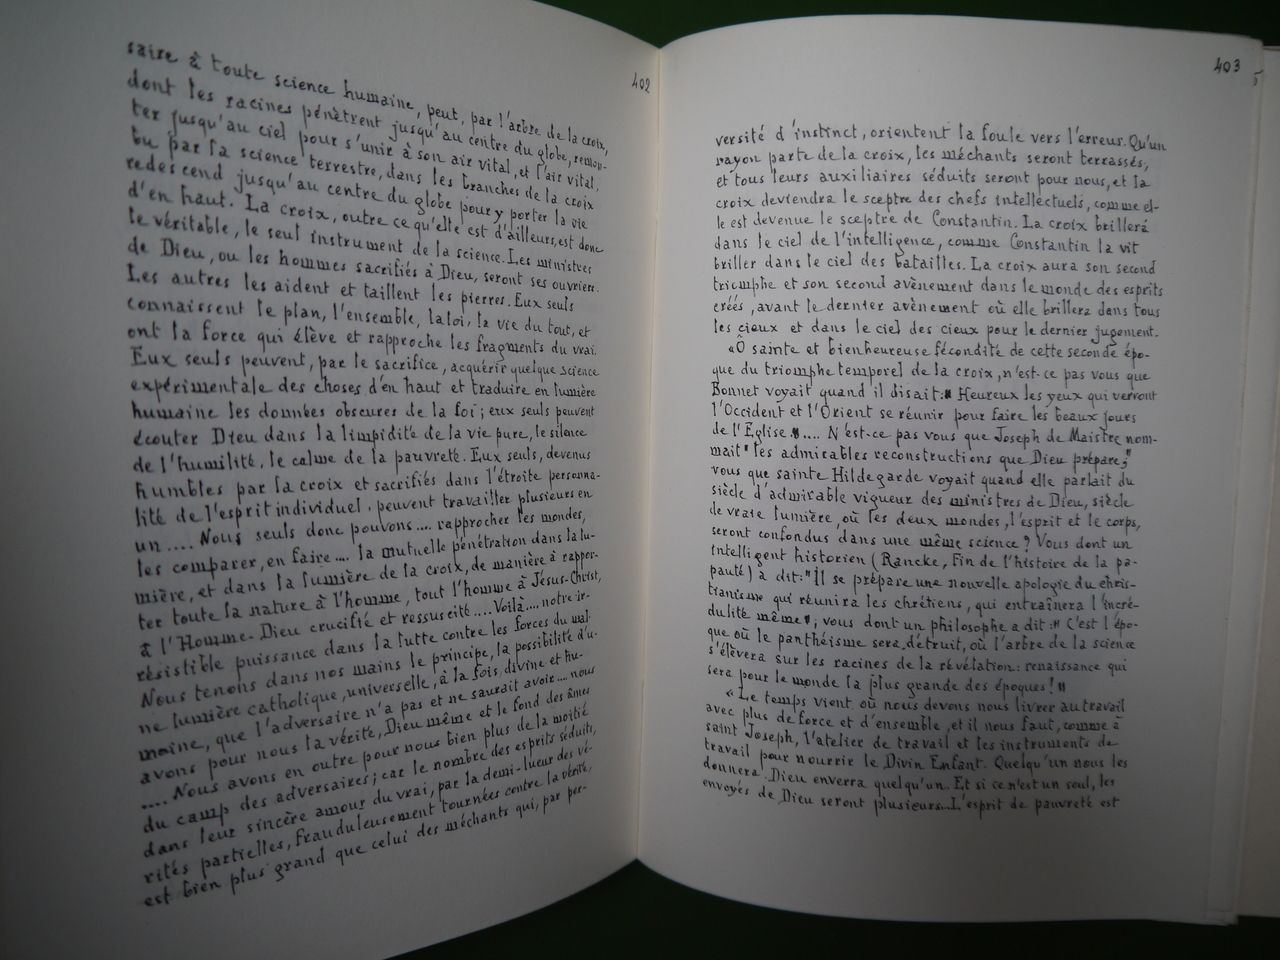 402
saire à toute science humaine, peut, par l'arbre de la croix,
dont les racines pénètrent jusqu'au centre du globe, remon-
ter jusqu'au ciel pour s'unir à son air vital, et l'air vital,
bu par la science terrestre, dans les branches de la croix
redescend jusqu'au centre du globe pour y porter la vie
d'en haut. La croix, outre ce qu'elle est d'ailleurs, est donc
le véritable, le seul instrument de la science. Les ministres
de Dieu, ou les hommes sacrifiés à Dieu, seront ses ouvriers.
Les autres les aident et taillent les pierres. Eux seuls
connaissent le plan, l'ensemble, la loi, la vie du tout, et
ont la force qui élève et rapproche les fragments du vrai.
Eux seuls peuvent, par le sacrifice, acquérir quelque science
expérimentale des choses d'en haut et traduire en lumière
humaine les données obscures de la foi; eux seuls peuvent
écouter Dieu dans la limpidité de la vie pure, le silence
de l'humilité, le calme de la pauvreté. Eux seuls, devenus
humbles par la croix et sacrifiés dans l'étroite personna-
lité de l'esprit individuel, peuvent travailler plusieurs en
un .... Nous seuls donc pouvons .... rapprocher les mondes,
les comparer, en faire .... la mutuelle pénétration dans la lu-
mière, et dans la lumière de la croix, de manière à rappor-
ter toute la nature à l'homme, tout l'homme à Jésus-Christ,
à l'Homme-Dieu crucifié et ressuscité .... Voilà .... notre ir-
résistible puissance dans la lutte contre les forces du mal.
Nous tenons dans nos mains le principe, la possibilité d'u-
ne lumière catholique, universelle, à la fois divine et hu-
maine, que l'adversaire n'a pas et ne saurait avoir .... nous
avons pour nous la vérité, Dieu même et le fond des âmes
.... Nous avons en outre pour nous bien plus de la moitié
du camp des adversaires; car le nombre des esprits séduits,
dans leur sincère amour du vrai, par la demi-lueur des vé-
rités partielles, frauduleusement tournées contre la vérité,
est bien plus grand que celui des méchants qui, par per-
403
versité d'instinct, orientent la foule vers l'erreur. Qu'un
rayon parte de la croix, les méchants seront terrassés,
et tous leurs auxiliaires séduits seront pour nous, et la
croix deviendra le sceptre des chefs intellectuels, comme el-
le est devenue le sceptre de Constantin. La croix brillera
dans le ciel de l'intelligence, comme Constantin la vit
briller dans le ciel des batailles. La croix aura son second
triomphe et son second avènement dans le monde des esprits
créés, avant le dernier avènement où elle brillera dans tous
les cieux et dans le ciel des cieux pour le dernier jugement.
«Ô sainte et bienheureuse fécondité de cette seconde épo-
que du triomphe temporel de la croix, n'est-ce pas vous que
Bonnet voyait quand il disait: " Heureux les yeux qui verront
l'Occident et l'Orient se réunir pour faire les beaux jours
de l'Église." .... N'est-ce pas vous que Joseph de Maistre nom-
mait " les admirables reconstructions que Dieu prépare;"
vous que sainte Hildegarde voyait quand elle parlait du
siècle d'admirable vigueur des ministres de Dieu, siècle
de vraie lumière, où les deux mondes, l'esprit et le corps,
seront confondus dans une même science? Vous dont un
intelligent historien (Rancke, Fin de l'histoire de la pa-
pauté) a dit: " Il se prépare une nouvelle apologie du chris-
tianisme qui réunira les chrétiens, qui entraînera l'incré-
dulité même"; vous dont un philosophe a dit: " C'est l'épo-
que où le panthéisme sera détruit, où l'arbre de la science
s'élèvera sur les racines de la révélation: renaissance qui
sera pour le monde la plus grande des époques! "
« Le temps vient où nous devons nous livrer au travail
avec plus de force et d'ensemble, et il nous faut, comme à
saint Joseph, l'atelier de travail et les instruments de
travail pour nourrir le Divin Enfant. Quelqu'un nous les
donnera. Dieu enverra quelqu'un. Et si ce n'est un seul, les
envoyés de Dieu seront plusieurs... L'esprit de pauvreté est